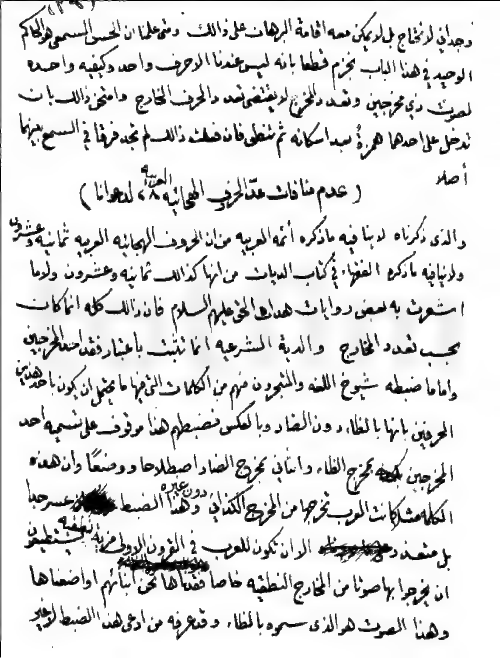 (٣٩)
وجداني لا نحتاج بل لا يمكن معه اقامة البرهان على ذالك ومتى علمنا ان الحس السمعي هو الحاكم
الوحيد في هذا الباب نجزم قطعا بانه ليس عندنا الا حرف واحد وكيفيه واحده
لصوت ذي مخرجين وتعدد المخرج لا يقتضي تعدد الحرف الخارج وامتحن ذالك بان
تدخل على احدهما همزةً بعد اسكانه ثم تنطق فان فعلت ذالك لم تجد فرقا في السمع بينهما
أصلا
( عدم منافات عدّ الحروف الهجائيه العربيه ٢٨ لدعوانا )
والذي ذكرناه لا ينافيه ما ذكره أئمه العربيه من ان الحروف الهجائيه العربيه ثمانيه وعشرون
ولا ينافيه ما ذكره الفقهاء في كتاب الديات من انها كذالك ثمانيه وعشرون ولا ما
اشعرت به بعض روايات هداة الحق عليهم السلام فان ذالك كله انما كان
بحسب تعدد المخارج والدية الشرعيه انما تثبت باعتبار فقد احد المخرجين
واما ما ضبطه شيوخ اللغه والمتبحرون منهم من الكلمات التي فيها ما يحتمل ان يكون باحد هذين
الحرفين بانها بالظاء دون الضاد وبالعكس فضبطهم هذا موقوف على تسميه احد
المخرجين بمخرج الظاء والثاني بمخرج الضاد اصطلاحا ووضعًا وان هذه
الكلمه مثلا كانت العرب تخرجها من المخرج الكذائي دون غيره وهذا الضبط عسر جدا
بل متعذر الا ان تكون للعرب في القرون الاولى نطقيه يستطيعون
ان يخرجوا بها صوتا من المخارج النطقيه خاصا فقدناها نحن ابنائهم او اضعناها
وهذا الصوت هو الذي سموه بالظاء وقد عرفه من ادعى هذا الضبط لا غير